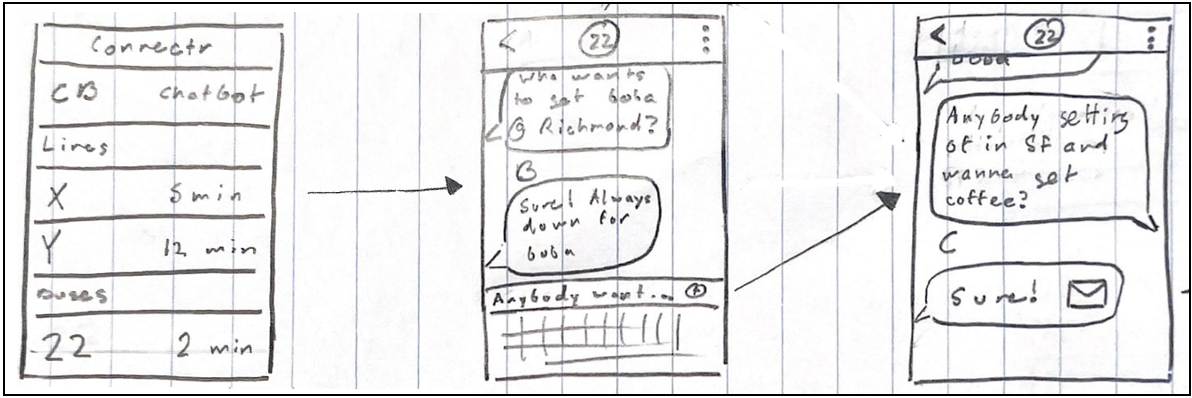 Connectr
CB chatbot
Lines
X 5 min
Y 12 min
Buses
22 2 min
< 22
who wants
to get boba
@ Richmond?
B
Sure! Always
down for
boba
Anybody want...
< 22
boba
Anybody getting
of in SF and
wanna get
coffee?
C
Sure!